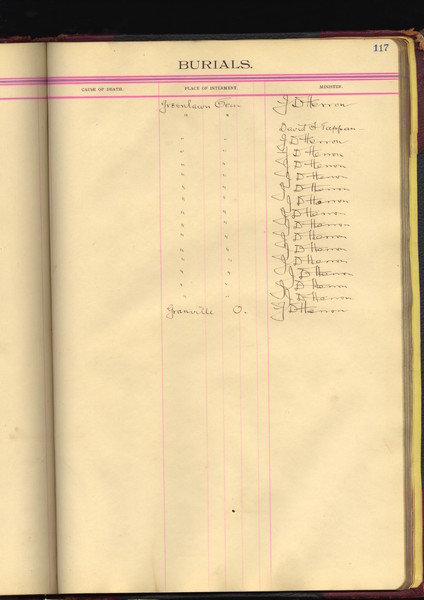 117
BURIALS.
CAUSE OF DEATH. PLACE OF INTERMENT. MINISTER.
Greenlawn Cem J D Herron
" "
David L Tappan
" " J D Herron
" " J D Herron
" " J D Herron
" " J D Herron
" " J D Herron
" " J D Herron
" " J D Herron
" " J D Herron
" " J D Herron
" " J D Herron
" " J D Herron
" " J D Herron
" " J D Herron
" " J D Herron
Granville O. J D Herron